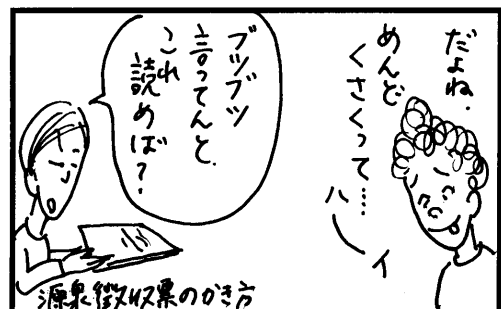 だよね．
めんど
くさくって…
ハーイ
ブツブツ
言ってんと、
これ
読めば？
源泉徴収票のかき方